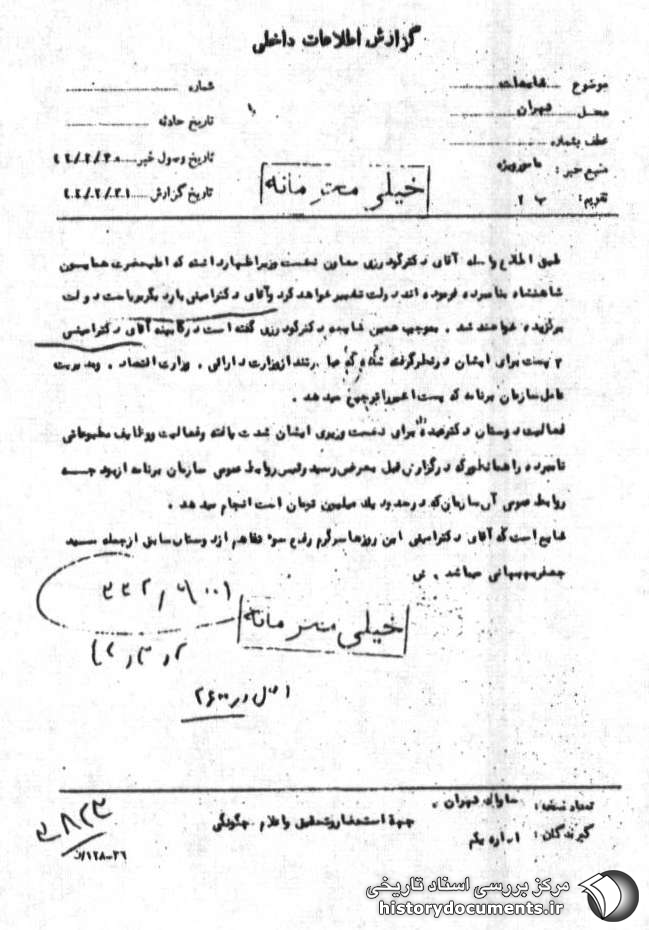 گزارش اطلاعات داخلی
موضوع شایعات
شماره
محل تهران
تاریخ حادثه
عطف بشماره
تاریخ وصول خبر
منبع خبر: مامور ویژه
تاریخ گزارش
تقویم: ب ۲
خیلی محرمانه
طبق اطلاع واصله آقای دکتر گودرزی معاون نخست وزیر اظهار داشته که اعلیحضرت همایون
شاهنشاه بنامبرده فرموده اند دولت تغییر خواهد کرد و آقای دکتر امینی بار دیگر بریاست دولت
برگزیده خواهند شد . بموجب همین شایعه دکتر گودرزی گفته است در کابینه آقای دکتر امینی
۳ پست برای ایشان در نظر گرفته شده که عبارتند از وزارت دارائی . وزارت اقتصاد . و مدیریت
عامل سازمان برنامه که پست اخیر را ترجیح میدهد .
فعالیت دوستان دکتر عبده برای نخست وزیری ایشان شدت یافته و فعالیت و وظایف مطبوعاتی
نامبرده را همانطور که در گزارش قبل بعرض رسید رئیس روابط عمومی سازمان برنامه از بودجه
روابط عمومی آن سازمان که در حدود یک میلیون تومان است انجام میدهد .
شایع است که آقای دکتر امینی این روزها سرگرم رفع سوء تفاهم از دوستان سابق از جمله سید
جعفر بهبهانی میباشد . ن
خیلی محرمانه
اصل در ۲۶۰۰
تعداد نسخه:
ساواک تهران
گیرندگان: اداره یکم
جهة استحضار و تحقیق و اعلام چگونگی
۸۲۳
۱۲۸-۳۶
مرکز بررسی اسناد تاریخی
historydocuments.ir